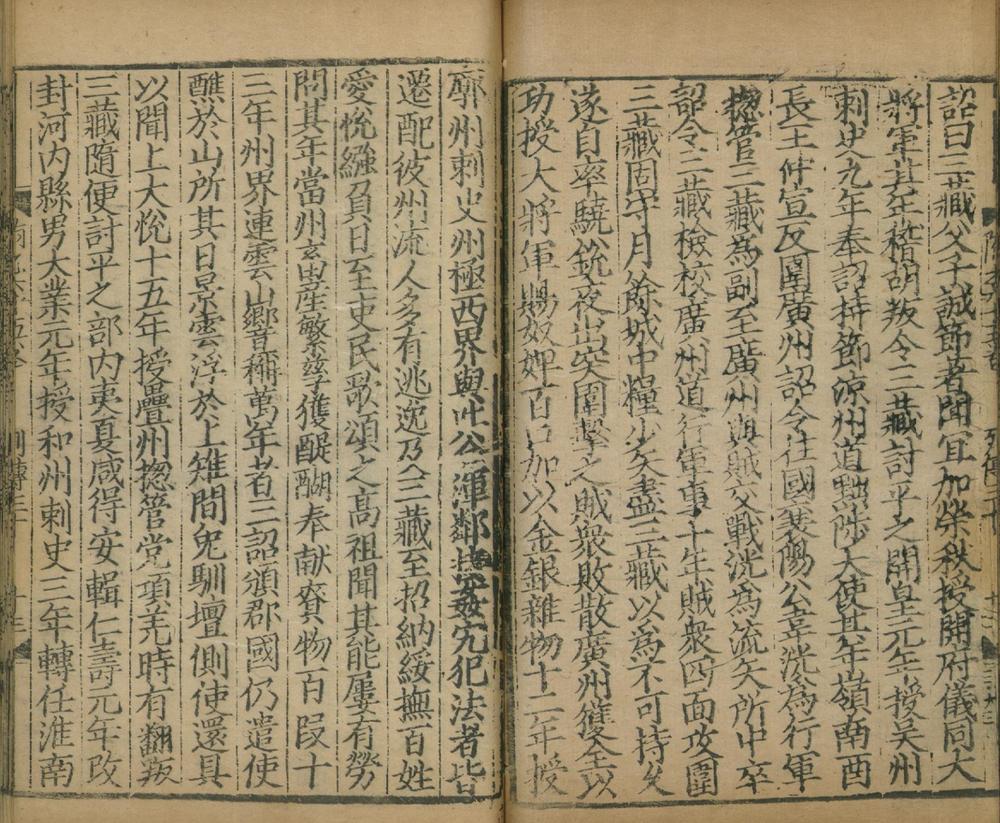 詔曰三藏父子誠節著聞宜加榮秩授開府儀同大
將軍其年稽胡叛令三藏討平之開皇元年授吳州
刺史九年奉詔持節涼州道黜陟大使其年嶺南酋
長王仲宣反圍廣州詔令柱國襄陽公韋洸為行軍
揔管三藏為副至廣州與賊交戰洸為流矢所中卒
詔令三藏檢校廣州道行軍事十年賊眾四面攻圍
三藏固守月餘城中糧少矢盡三藏以為不可持久
遂自率驍銳夜出突圍擊之賊眾敗散廣州獲全以
功授大將軍賜奴婢百口加以金銀雜物十二年授
廓州刺史州極西界與吐谷渾鄰接姦宄犯法者皆
遷配彼州流人多有逃逸乃三藏至招納綏撫百姓
愛悅繦負日至吏民歌頌之高祖聞其能屢有勞
問其年當州畜產繁孳獲醍醐奉獻賚物百段十
三年州界連雲山響稱萬年者三詔頒郡國仍遣使
醮於山所其日景雲浮於上雉間兔馴壇側使還具
以聞上大悅十五年授疊州揔管党項羌時有翻叛
三藏隨便討平之部內夷夏咸得安輯仁壽元年改
封河內縣男大業元年授和州刺史三年轉任淮南